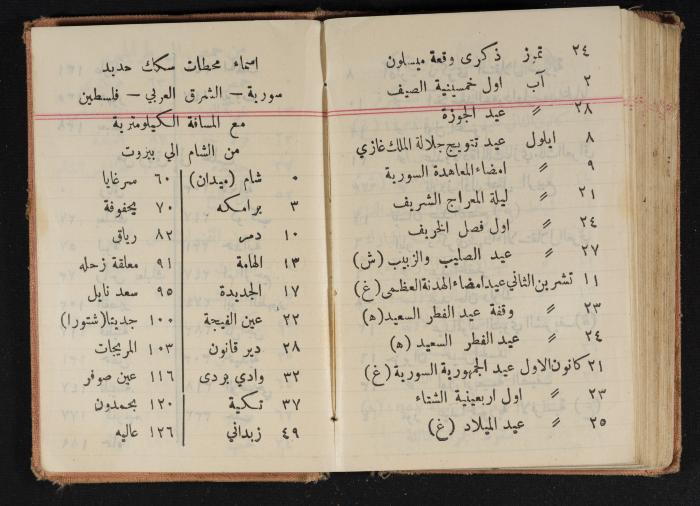 ٢٤ تموز ذكرى وقعة ميسلون
٢ آب اول خمسينية الصيف
٢٨ 〃 عيد الجوزة
٨ ايلول عيد تتويج جلالة الملك غازي
٩ 〃 امضاء المعاهدة السورية
٢١ 〃 ليلة المعراج الشريف
٢٤ 〃 اول فصل الخريف
٢٧ 〃 عيد الصليب والزبيب (ش)
١١ تشرين الثاني عيد امضاء الهدنة العظمى (غ)
٢٣ 〃 وقفة عيد الفطر السعيد (ه)
٢٤ 〃 عيد الفطر السعيد (ه)
٢١ كانون الاول عيد الجمهورية السورية (غ)
٢٣ 〃 اول اربعينية الشتاء
٢٥ 〃 عيد الميلاد (غ)
اسماء محطات سكك حديد
سورية – الشرق العربي – فلسطين
مع المسافة الكيلومترية
من الشام الى بيروت
٠ شام (ميدان) ٦٠ سرغايا
٣ برامكه ٧٠ يحفوفة
١٠ دمر ٨٢ رياق
١٣ الهامة ٩١ معلقة زحله
١٧ الجديدة ٩٥ سعد نايل
٢٢ عين الفيجة ١٠٠ جديتا (شتورا)
٢٨ دير قانون ١٠٣ المريجات
٣٢ وادي بردى ١١٦ عين صوفر
٣٧ تكية ١٢٠ بحمدون
٤٩ زبداني ١٢٦ عاليه